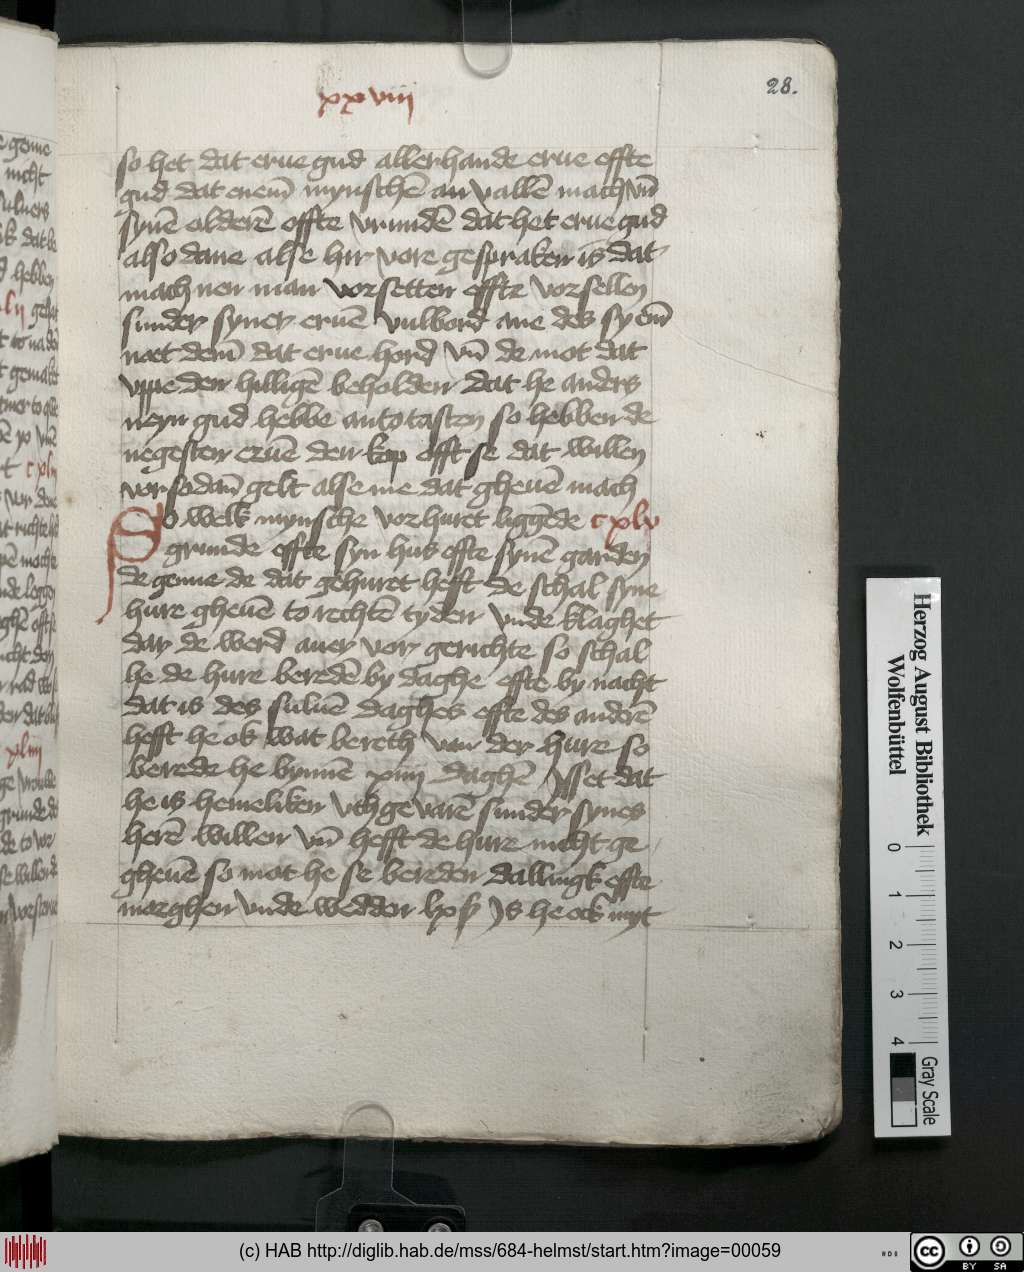 xxviii
28.
so het dat erue gud allerhande erue effte
gud dat enem̄ mynschē an vallē mach vn̄
synē olderē effte vrundē dat het erue gud
also dane alse hir vore gespraken is dat
mach nen man vorsetten effte vorsellen
sunder syner eruē vulbord ane des sy em̄
noet dem̄ dat erue hord vn̄ de mot dat
vppe den hilligē beholden dat he anders
neyn gud hebbe antotasten so hebben de
negesten eruē den kop efft se dat willen
vor sodan̄ gelt alse me dat gheuē mach
So welk mynsche vorhuret liggēde cxlv
grunde effte syn hus effte synē garden
de genne de dat gehuret hefft de schal syne
hure gheuē to rechtē tyden vnde klaghet
dar de werd auer vor gerichte so schal
he de hure beredē by daghe effte by nacht
dat is des suluē daghes effte des anderē
hefft he ok wat bereth van der hure so
berede he bynnē xiiii daghē Isset dat
he is hemeliken vthgevarē sunder synes
herē willen vn̄ hefft de hure nicht ge
gheuē so mot he se bereden dallingk effte
morghen vnde wedden Is he ock myt
Herzog August Bibliothek
Wolfenbüttel
0 1 2 3 4
Gray Scale
(c) HAB http://diglib.hab.de/mss/684-helmst/start.htm?image=00059
cc BY SA